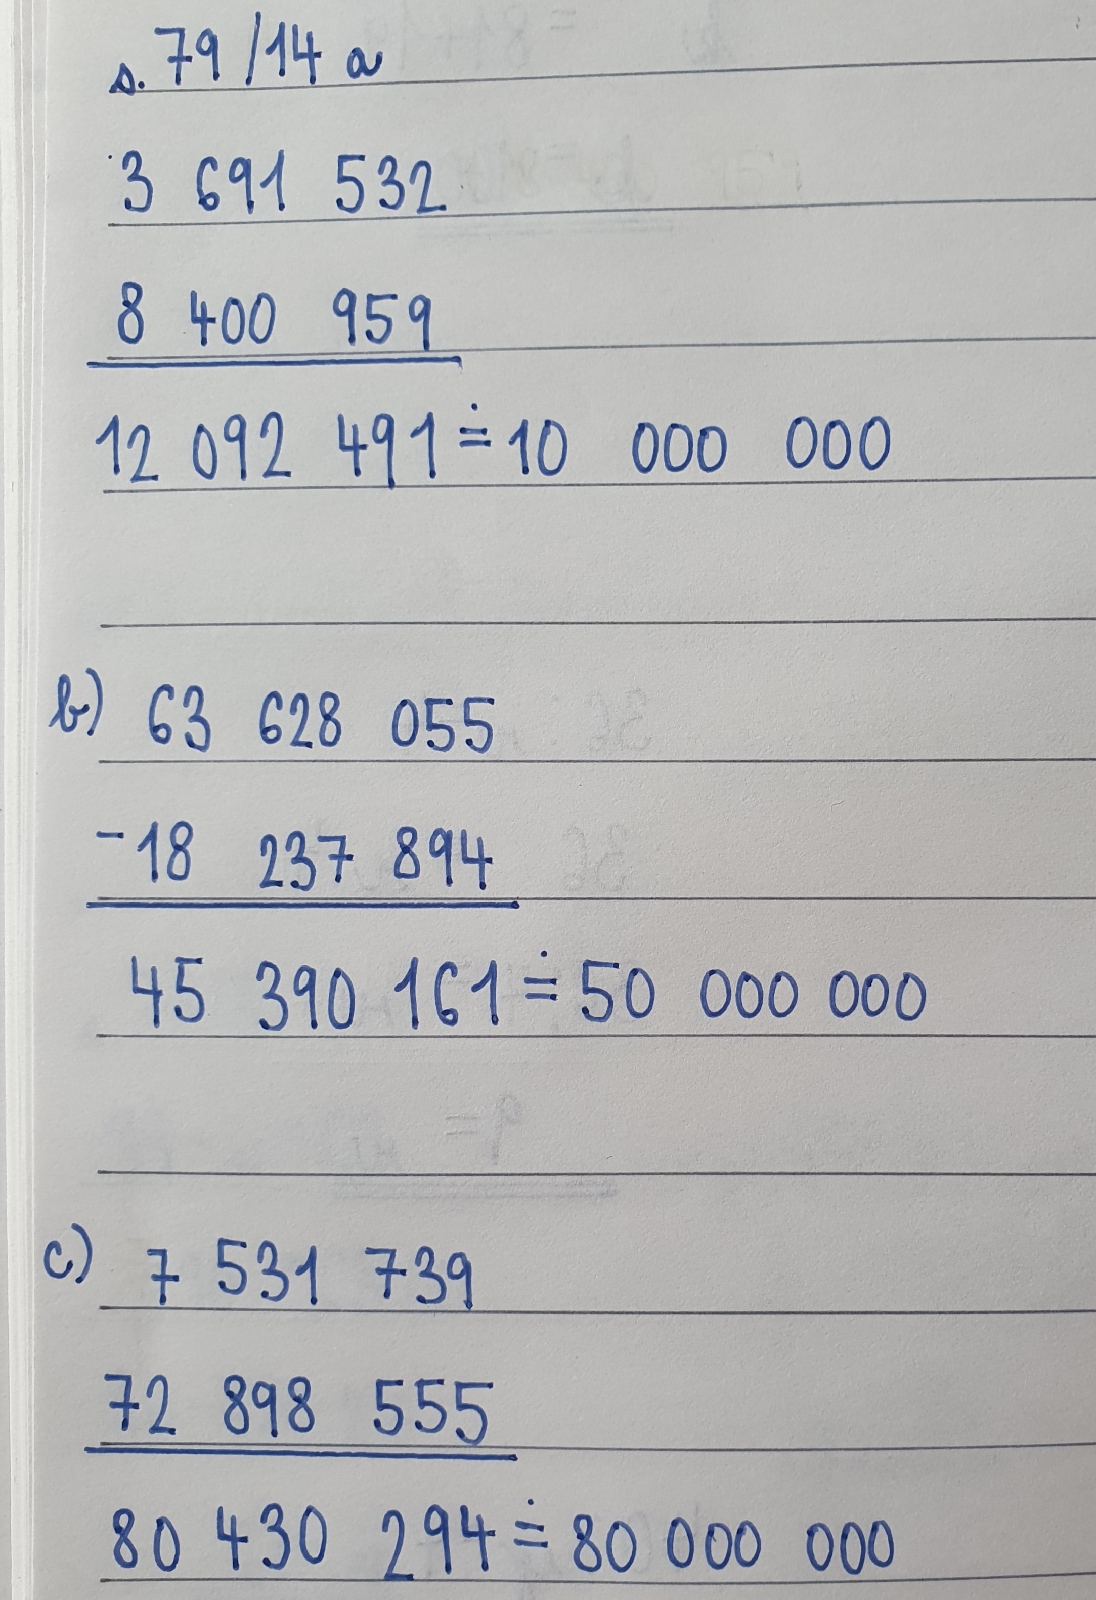 s. 79/14 a
3 691 532
8 400 959
12 092 491 ≐ 10 000 000
b) 63 628 055
-18 237 894
45 390 161 ≐ 50 000 000
c) 7 531 739
72 898 555
80 430 294 ≐ 80 000 000